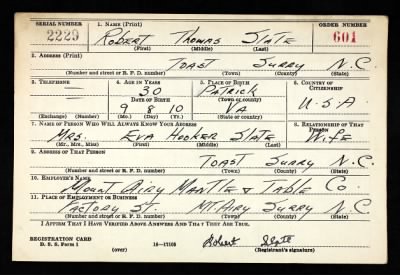 SERIAL NUMBER 1. NAME (Print) ORDER NUMBER
2229 ROBERT THOMAS SLATE 601
(First) (Middle) (Last)
2. ADDRESS (Print)
TOAST SURRY N.C.
(Number and street or R. F. D. number) (Town) (County) (State)
3. TELEPHONE 4. AGE IN YEARS 5. PLACE OF BIRTH 6. COUNTRY OF CITIZENSHIP
— 30 PATRICK
DATE OF BIRTH (Town or county)
9 8 10 VA U.S.A
(Exchange) (Number) (Mo.) (Day) (Yr.) (State or country)
7. NAME OF PERSON WHO WILL ALWAYS KNOW YOUR ADDRESS 8. RELATIONSHIP OF THAT PERSON
MRS. EVA HOOKER SLATE WIFE
(Mr., Mrs., Miss) (First) (Middle) (Last)
9. ADDRESS OF THAT PERSON
TOAST SURRY N.C.
(Number and street or R. F. D. number) (Town) (County) (State)
10. EMPLOYER'S NAME
MOUNT AIRY MANTLE & TABLE CO.
11. PLACE OF EMPLOYMENT OR BUSINESS
FACTORY ST. MT. AIRY SURRY N.C.
(Number and street or R. F. D. number) (Town) (County) (State)
I AFFIRM THAT I HAVE VERIFIED ABOVE ANSWERS AND THAT THEY ARE TRUE.
REGISTRATION CARD
D. S. S. Form 1 16—17105 Robert Slate
(over) (Registrant's signature)